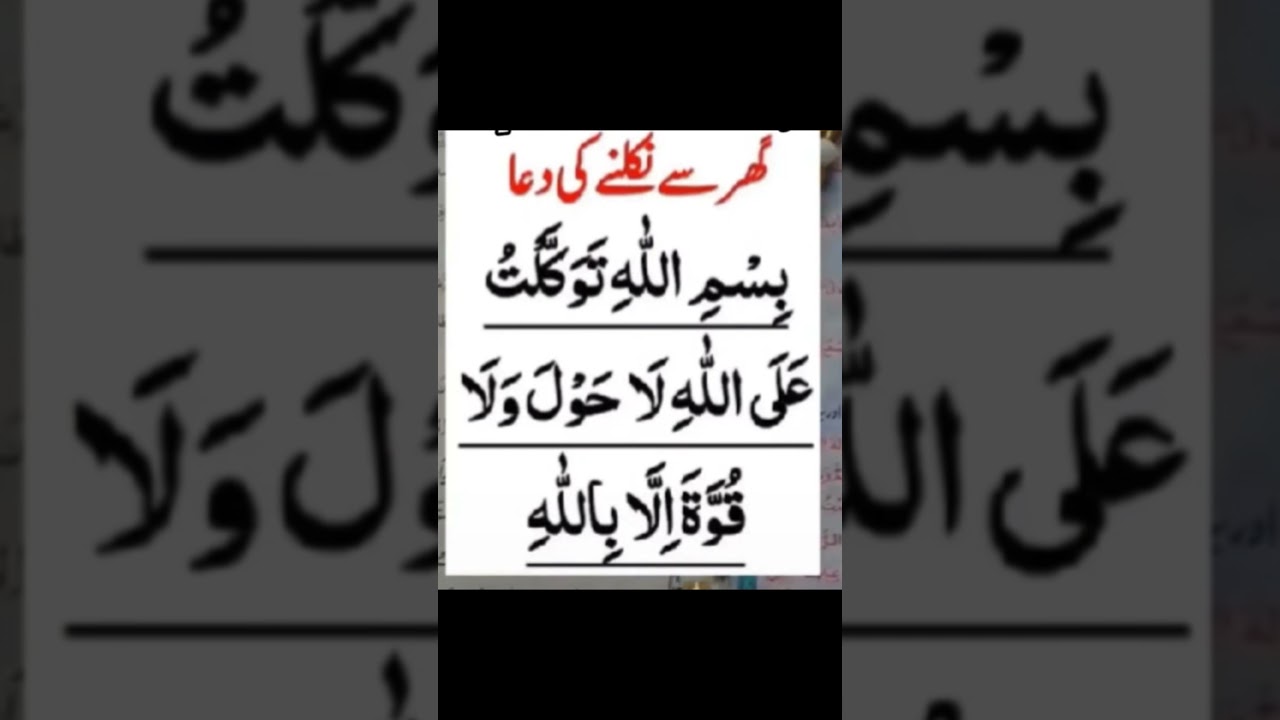 گھر سے نکلنے کی دعا
بِسْمِ اللّٰهِ تَوَكَّلْتُ
عَلَى اللّٰهِ لَا حَوْلَ وَلَا
قُوَّةَ اِلَّا بِاللّٰهِ